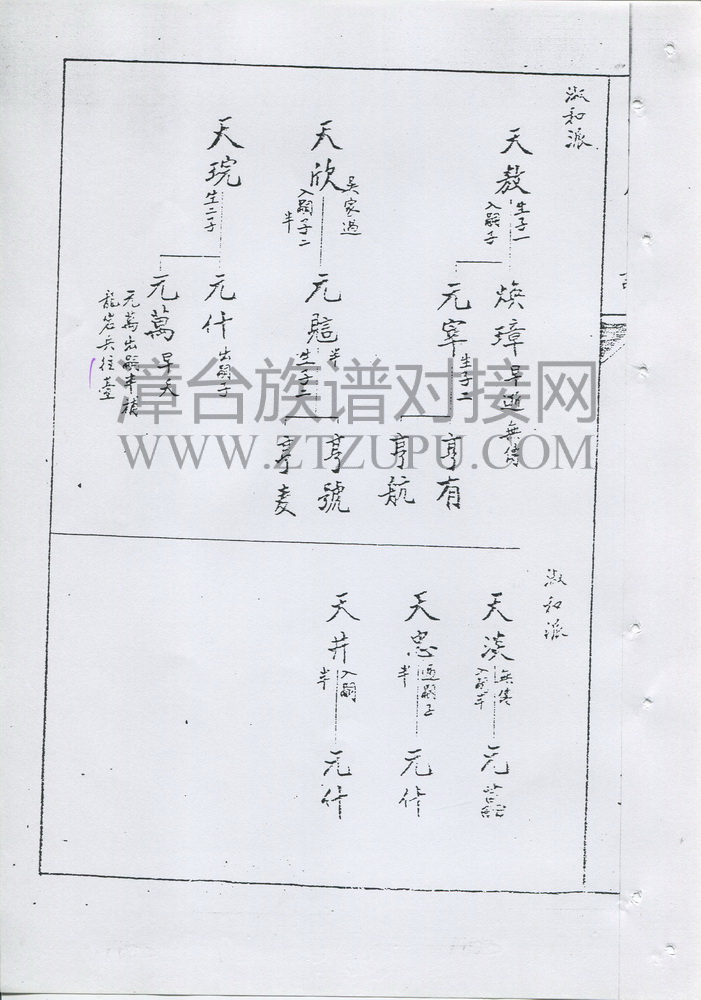 淑和派
天敖
生子一
入嗣子
煥璋
早逝無傳
元宰
生子二
亨有
亨航
天欣
吳家過
入嗣子二
半
元
半
生子二
亨號
亨麦
天琓
生二子
元什
出嗣子
元萬
早夭
元萬出嗣半積
龍岩兵往臺
淑和派
天淡
無傳
入嗣半
元
天忠
過嗣子
半
元什
天井
入嗣
半
元什
漳台族谱对接网
WWW.ZTZUPU.COM